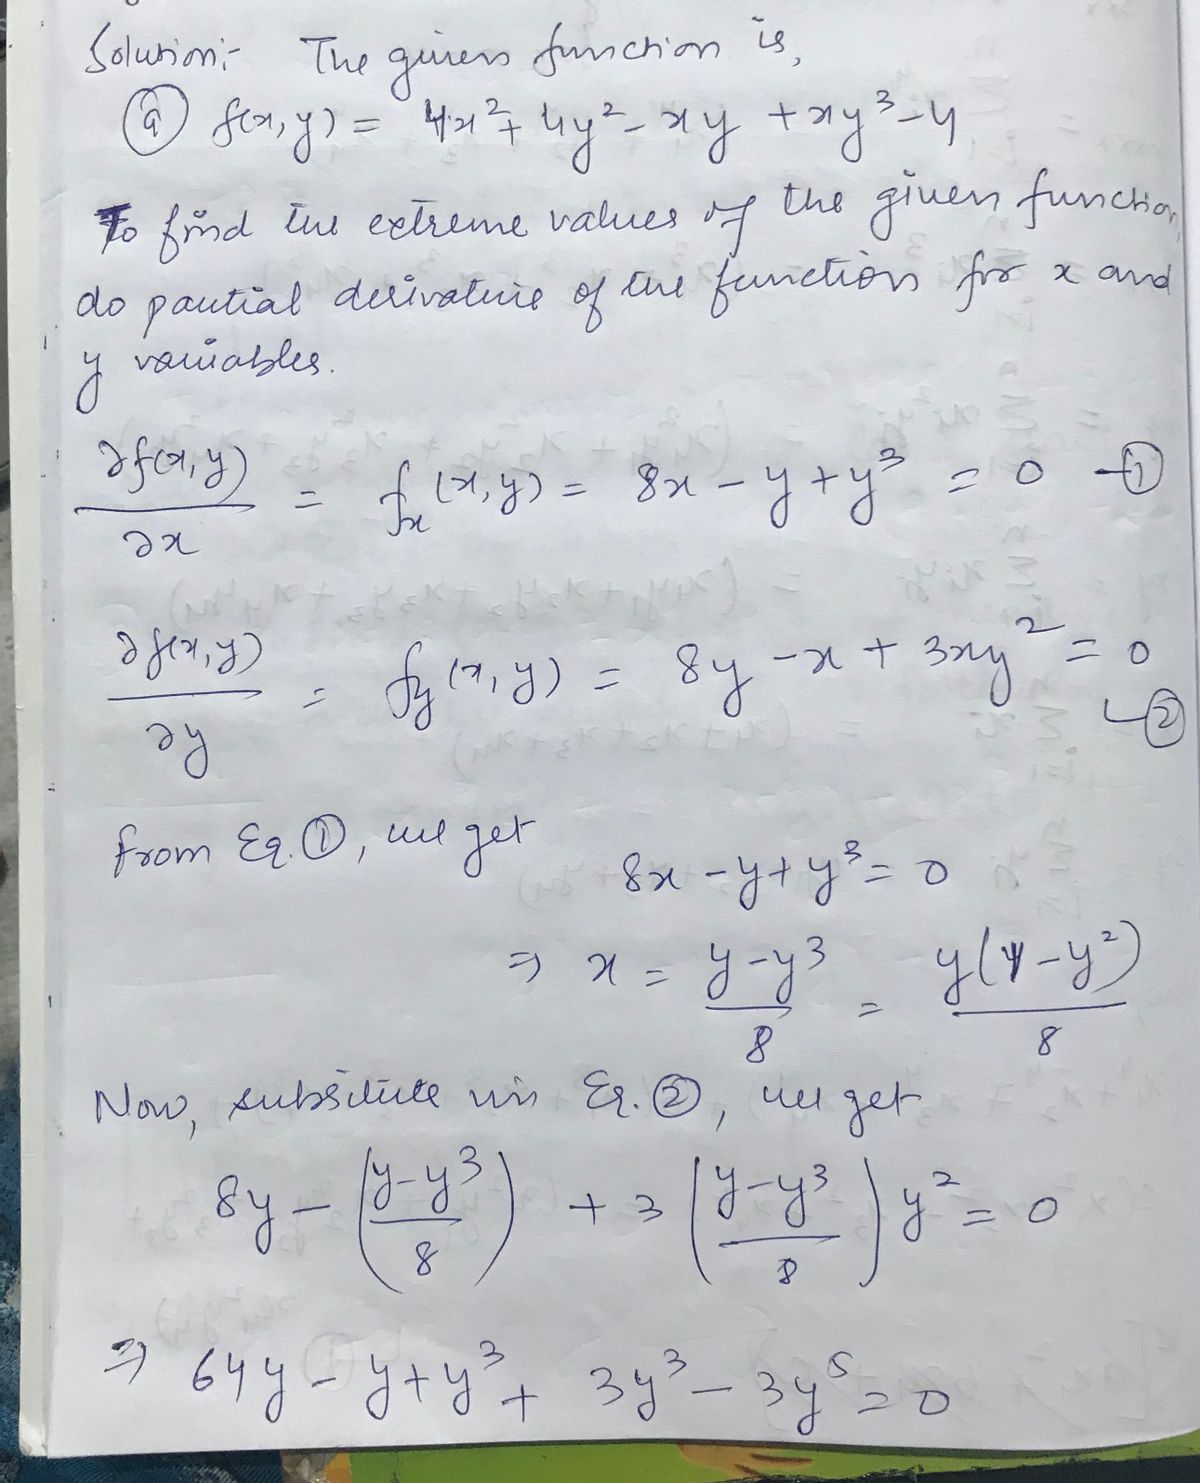 Solution:- The given function is,
(a) f(x,y) = 4x² + 4y² - xy + xy³ - 4
To find the extreme values of the given function,
do partial derivative of the function for x and
y variables.
∂f(x,y)/∂x = fₓ(x,y) = 8x - y + y³ = 0 —①
∂f(x,y)/∂y = f_y(x,y) = 8y - x + 3xy² = 0
—②
from Eq. ①, we get
8x - y + y³ = 0
⇒ x = (y - y³)/8 = y(1 - y²)/8
Now, substitute in Eq. ②, we get
8y - ((y - y³)/8) + 3((y - y³)/8)y² = 0
⇒ 64y - y + y³ + 3y³ - 3y⁵ = 0